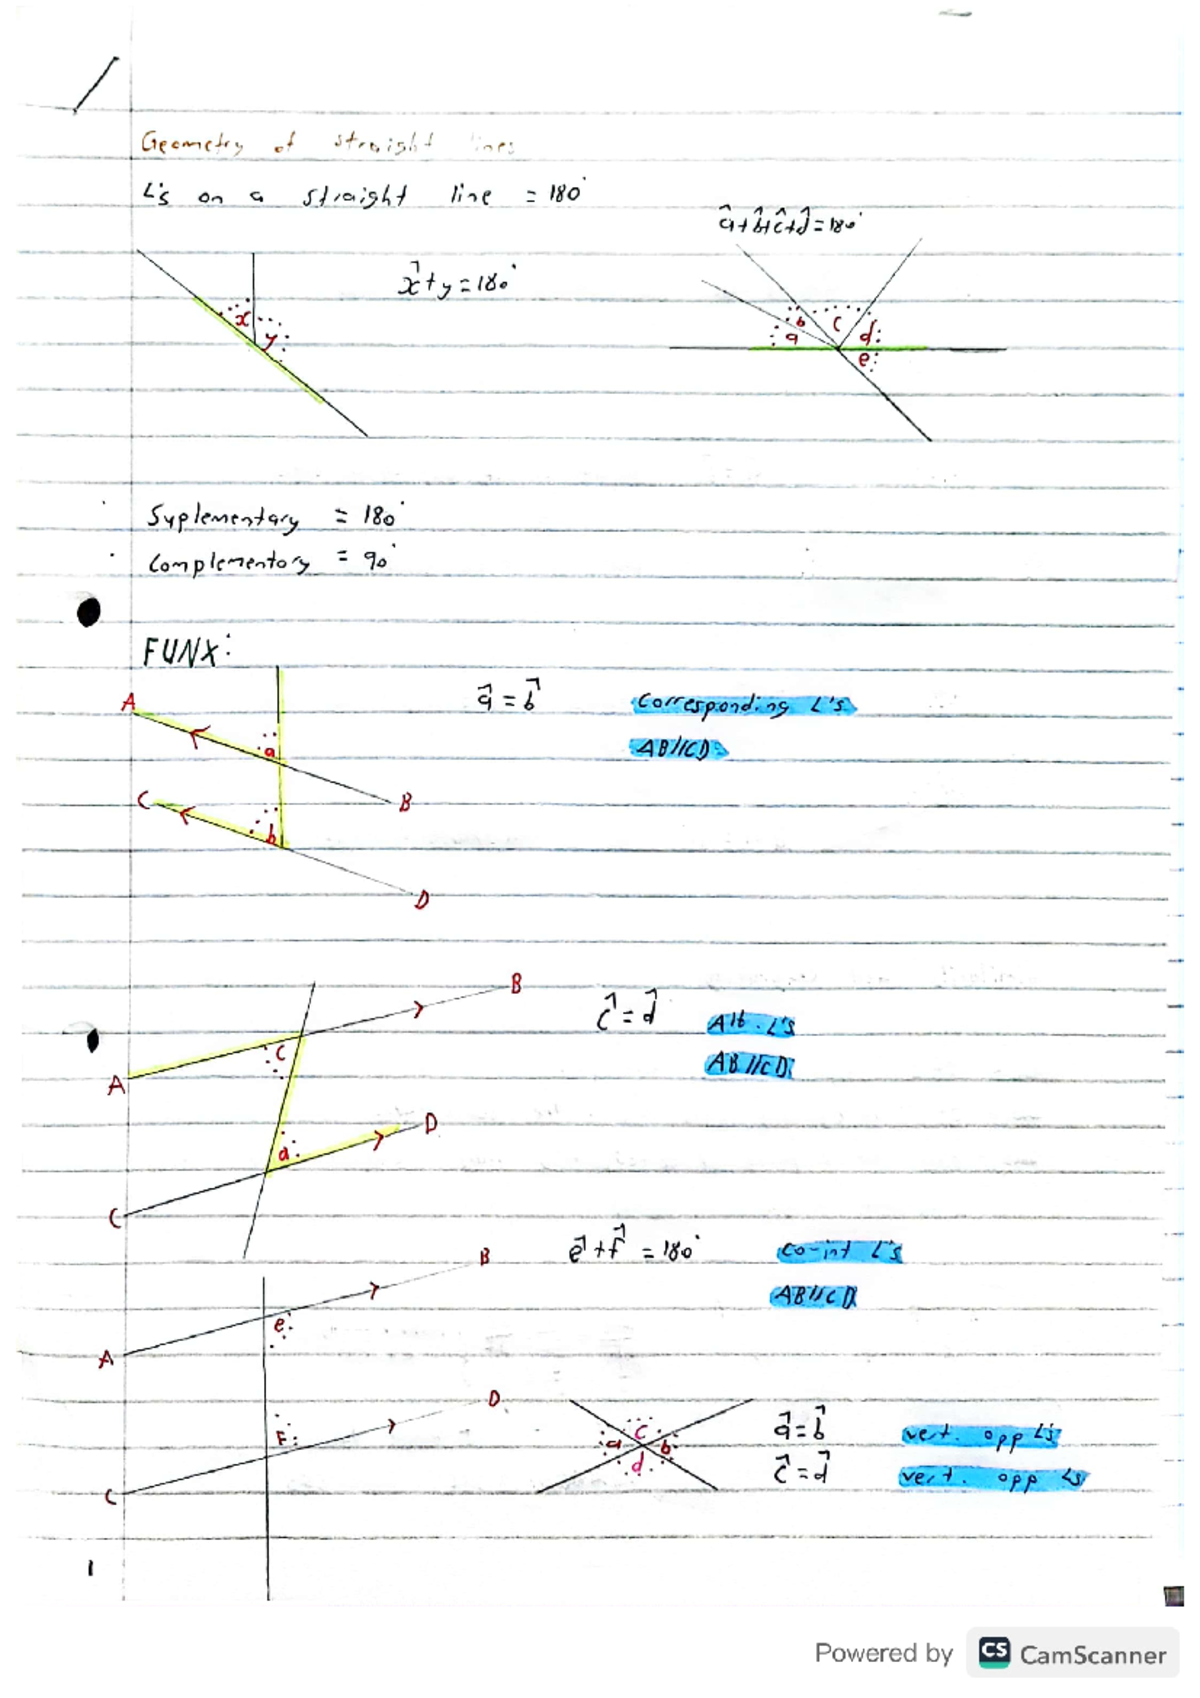 Geometry of straight lines
L's on a straight line = 180°
â+b̂+ĉ+d̂=180°
x̂+y=180°
x
y
a
b
c
d
e
Suplementary = 180°
Complementory = 90°
FUNX:
A
B
C
D
a
b
â = b̂
Corresponding L's
AB//CD
A
B
C
D
c
d
ĉ = d̂
Alt. L's
AB//CD
A
B
C
D
e
F
ê+f̂ = 180°
co-int L's
AB//CD
a
b
c
d
â=b̂ vert. opp L's
ĉ=d̂ vert. opp Ls
1
Powered by CS CamScanner